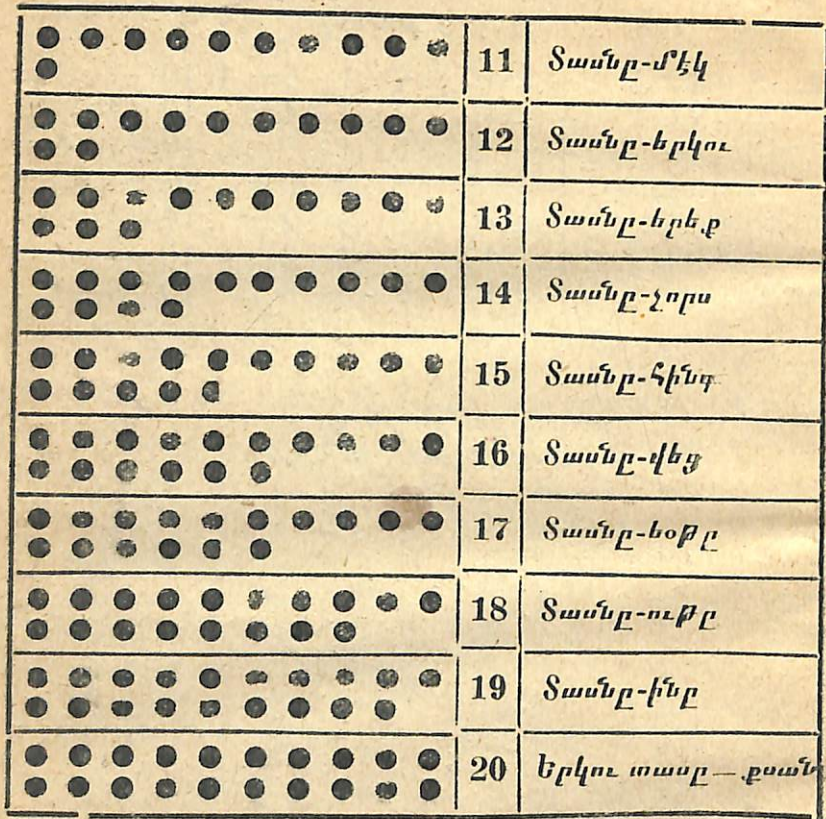 11 Տասնը-մէկ
12 Տասնը-երկու
13 Տասնը-երեք
14 Տասնը-չորս
15 Տասնը-հինգ
16 Տասնը-վեց
17 Տասնը-եօթը
18 Տասնը-ութը
19 Տասնը-ինը
20 Երկու տասը — քսան